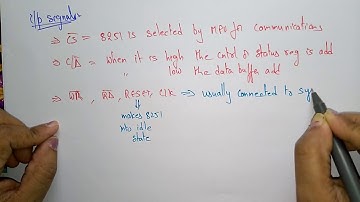 i/p signals
⇒ C̅S̅ = 8251 is selected by MPU for communications
⇒ C/D̅ = when it is high the cntrl or status reg is add
" low the data buffer add
⇒ W̅R̅, R̅D̅, RESET, CLK ⇒ usually connected to sys
⇓
makes 8251
into idle
state